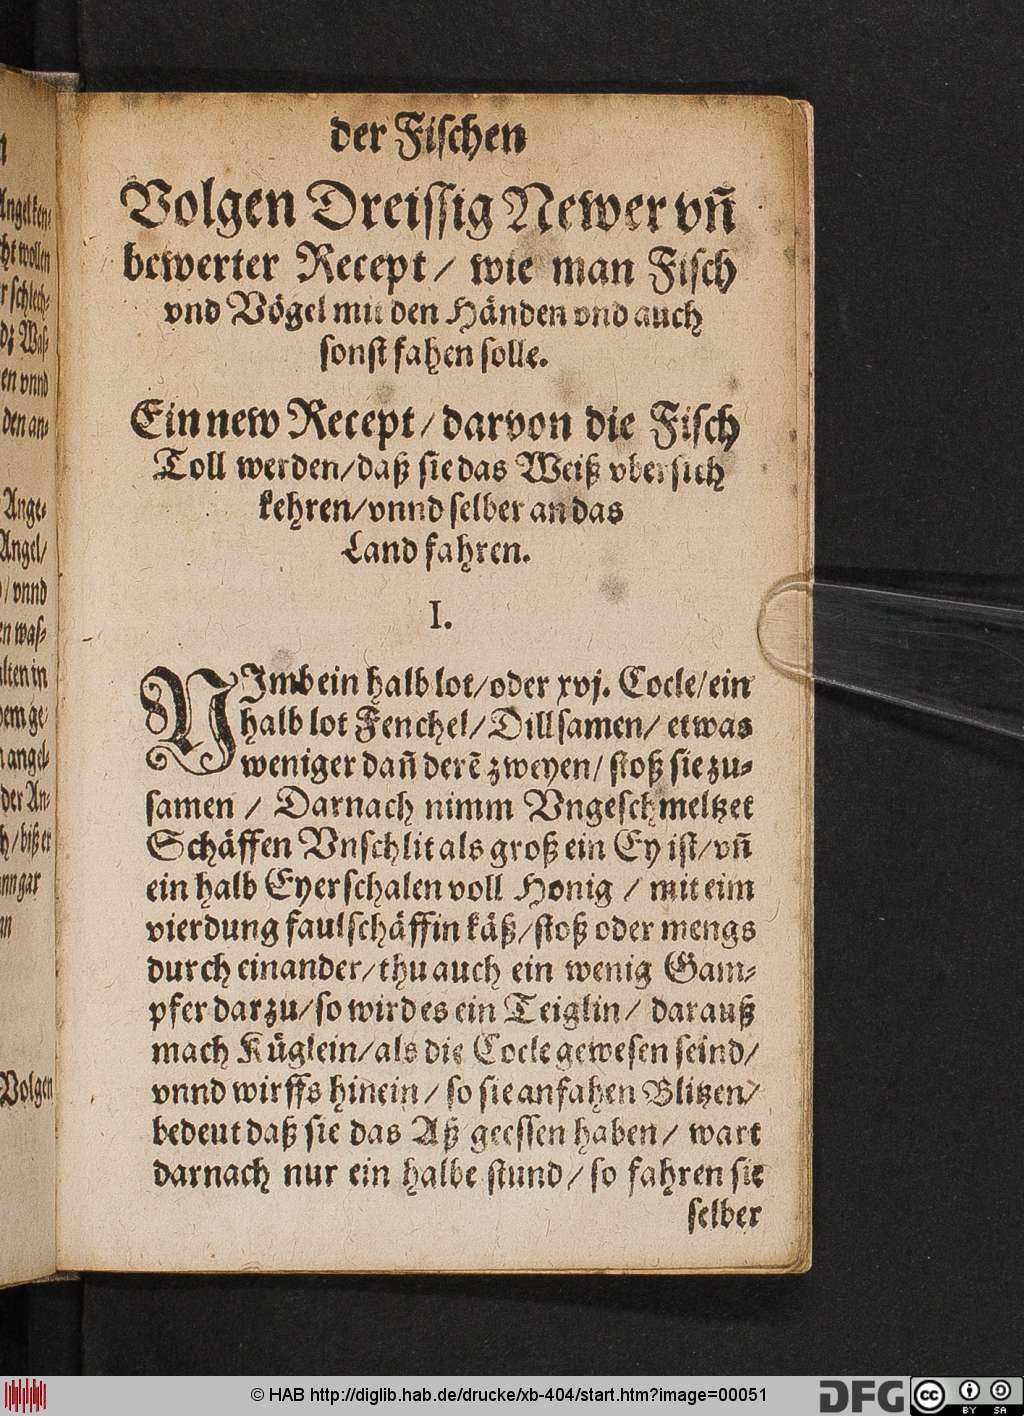 der Fischen
Volgen Dreissig Newer vñ
bewerter Recept / wie man Fisch
vnd Vögel mit den Händen vnd auch
sonst fahen solle.
Ein new Recept / darvon die Fisch
Toll werden / daß sie das Weiß vbersich
kehren / vnnd selber an das
Land fahren.
I.
NImb ein halb lot / oder xvj. Cocle / ein
halb lot Fenchel / Dillsamen / etwas
weniger dañ derẽ zweyen / stoß sie zu-
samen / Darnach nimm Vngeschmeltzet
Schäffen Vnschlit als groß ein Ey ist / vñ
ein halb Eyerschalen voll Honig / mit eim
vierdung faul schäffin käß / stoß oder mengs
durch einander / thu auch ein wenig Gam-
pfer darzu / so wird es ein Teiglin / darauß
mach Küglein / als die Cocle gewesen seind /
vnnd wirffs hinein / so sie anfahen Blitzen /
bedeut daß sie das Aß geessen haben / wart
darnach nur ein halbe stund / so fahren sie
selber
Angel
wollen
Waß-
vnnd
den an-
Ange-
Angel /
/ vnnd
was-
in
ge-
angel-
der An-
/ biß er
gar
Volgen
© HAB http://diglib.hab.de/drucke/xb-404/start.htm?image=00051
DFG
cc BY SA